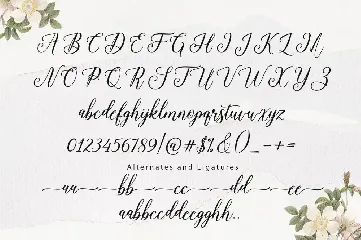 A B C D E F G H I J K L M
N O P Q R S T U V W X Y Z
abcdefghijklmnopqrstuvwxyz
0123456789!@#$%&()_-+=
Alternates and Ligatures
aa bb cc dd ee
aabbccddeegghh..